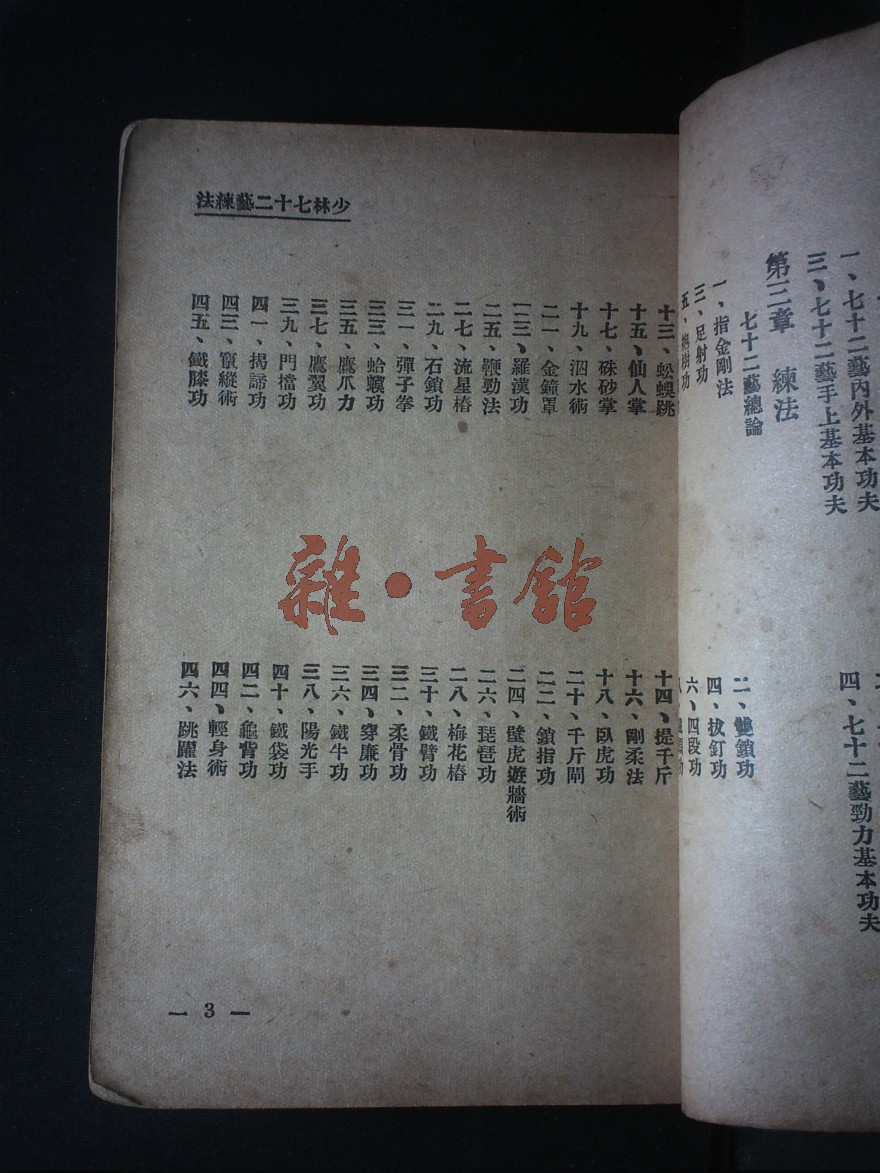 一、七十二藝內外基本功夫
三、七十二藝手上基本功夫
四、七十二藝勁力基本功夫
第三章 練法
七十二藝總論
一、指金剛法
二、雙鎖功
三、足射功
四、拔釘功
樹功
六、四段功
少林七十二藝練法
十三、蜈蚣跳
十四、提千斤
十五、仙人掌
十六、剛柔法
十七、硃砂掌
十八、臥虎功
十九、泅水術
二十、千斤閘
二一、金鐘罩
二二、鎖指功
二三、羅漢功
二四、壁虎遊牆術
二五、鞭勁法
二六、琵琶功
二七、流星樁
二八、梅花樁
二九、石鎖功
三十、鐵臂功
三一、彈子拳
三二、柔骨功
三三、蛤蟆功
三四、穿廉功
三五、鷹爪力
三六、鐵牛功
三七、鷹翼功
三八、陽光手
三九、門檔功
四十、鐵袋功
四一、揭諦功
四二、龜背功
四三、竄縱術
四四、輕身術
四五、鐵膝功
四六、跳躍法
— 3 —
雜·書館